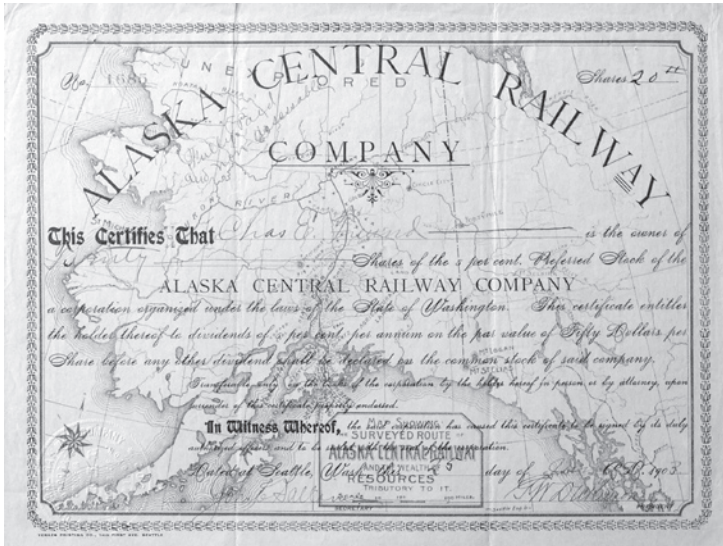 UNEXPLORED
No. 1685
Shares 20
ALASKA CENTRAL RAILWAY
COMPANY
RIVER
This Certifies That Chas E. is the owner of
Shares of the 5 per cent. Preferred Stock of the
ALASKA CENTRAL RAILWAY COMPANY
a corporation organized under the laws of the State of Washington. This certificate entitles
the holder thereof to dividends of 5 per cent. per annum on the par value of Fifty Dollars per
Share before any other dividend shall be declared on the common stock of said company.
Transferable only on the books of the corporation by the holder hereof in person or by attorney, upon
surrender of this certificate properly endorsed.
In Witness Whereof, the said corporation has caused this certificate to be signed by its duly
authorized officers and to be sealed with the seal of the corporation.
Dated at Seattle, Wash. 5 day of A.D. 1903
MAP SHOWING
SURVEYED ROUTE OF
ALASKA CENTRAL RAILWAY
AND THE WEALTH OF
RESOURCES
TRIBUTARY TO IT.
SECRETARY